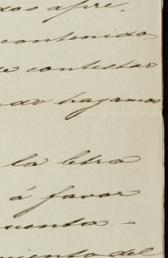 dos apre.
contenido
de contestar
do hagamos
la letra
á favor
uenta.—
miento del